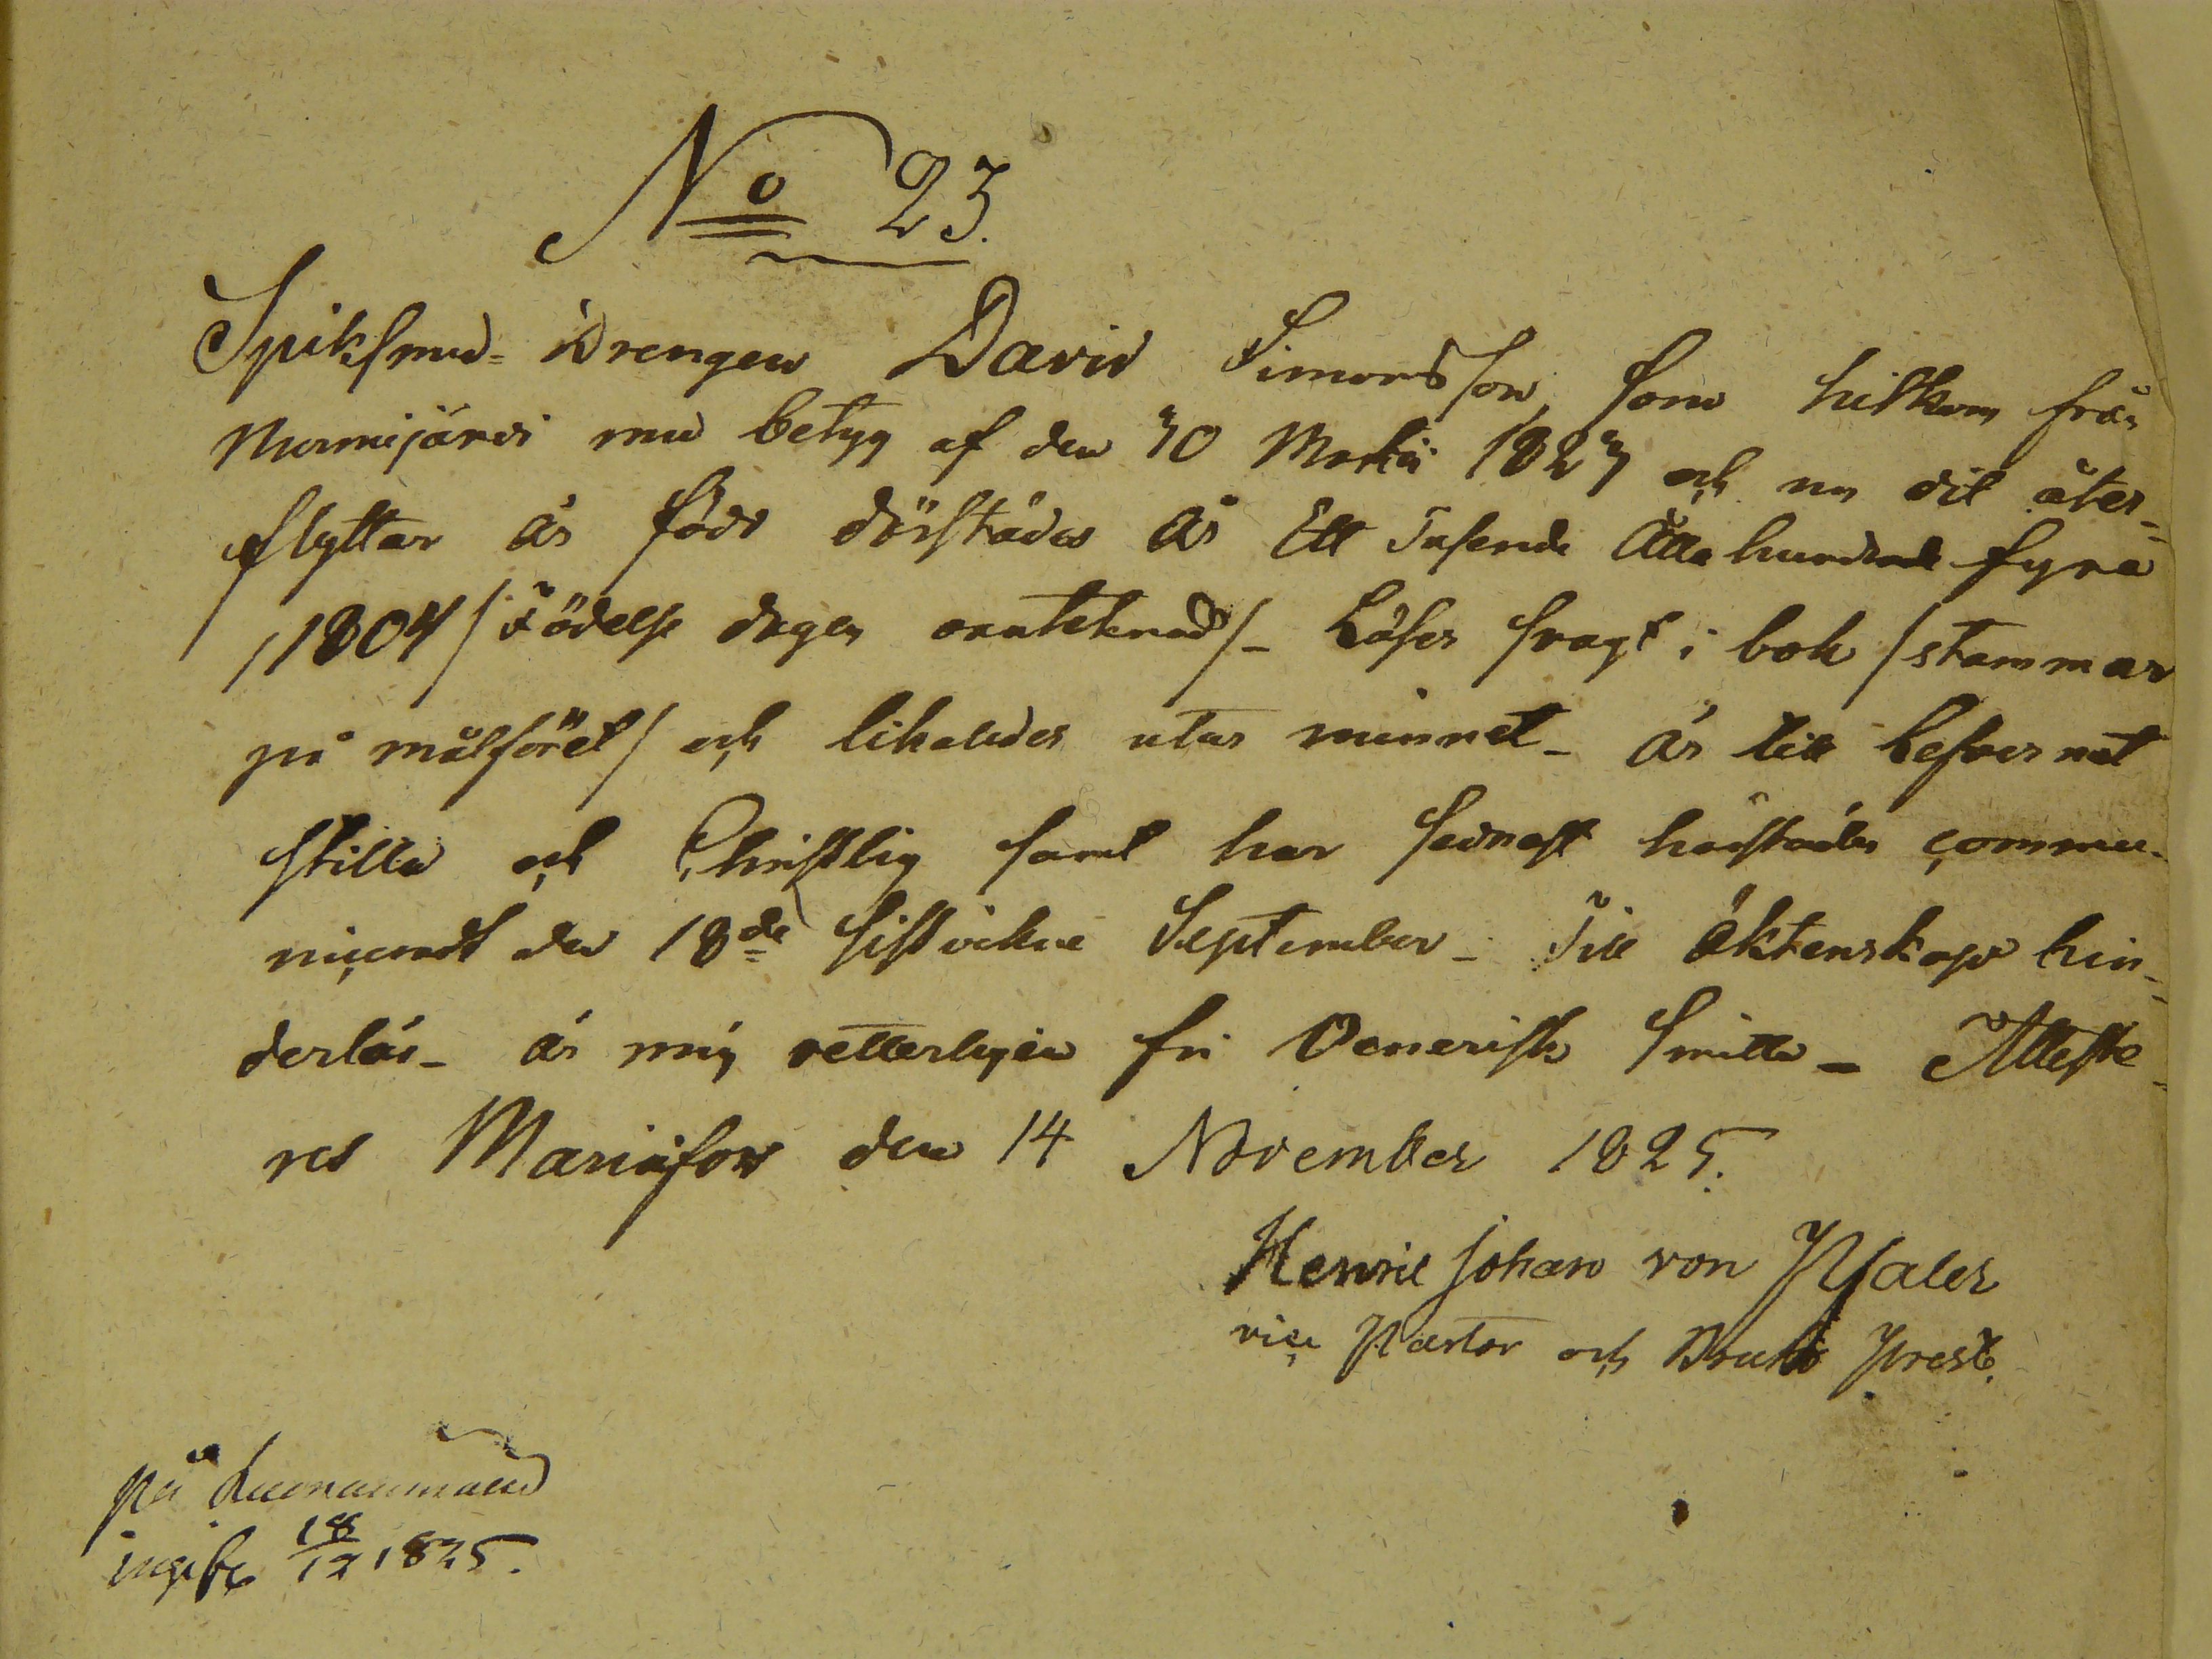 No 23.
Spiksmed-Drengen David Simonsson, som hitkom från
Nurmijärvi med betyg af den 30 Martii 1823 och nu dit åter-
flyttar är född därstädes år Ett Tusende Åtta hundrade fyra
/1804/ Födelse dagen oanteknad/- Läser svagt i bok /stammar
på målföret/ och likaledes utur minnet - är till Lefvernet
stilla och Christlig samt har sednast härstädes commu-
nicerat den 18de sistvikne September - Till Äktenskap hin-
derlös - är mig vetterligen fri Venerisk smitta - Atteste-
res Mariæfors den 14 November 1825.
Henric Johan von Pfaler
vice Pastor och Bruks Prest.
på
ingifv. 18/12 1825.